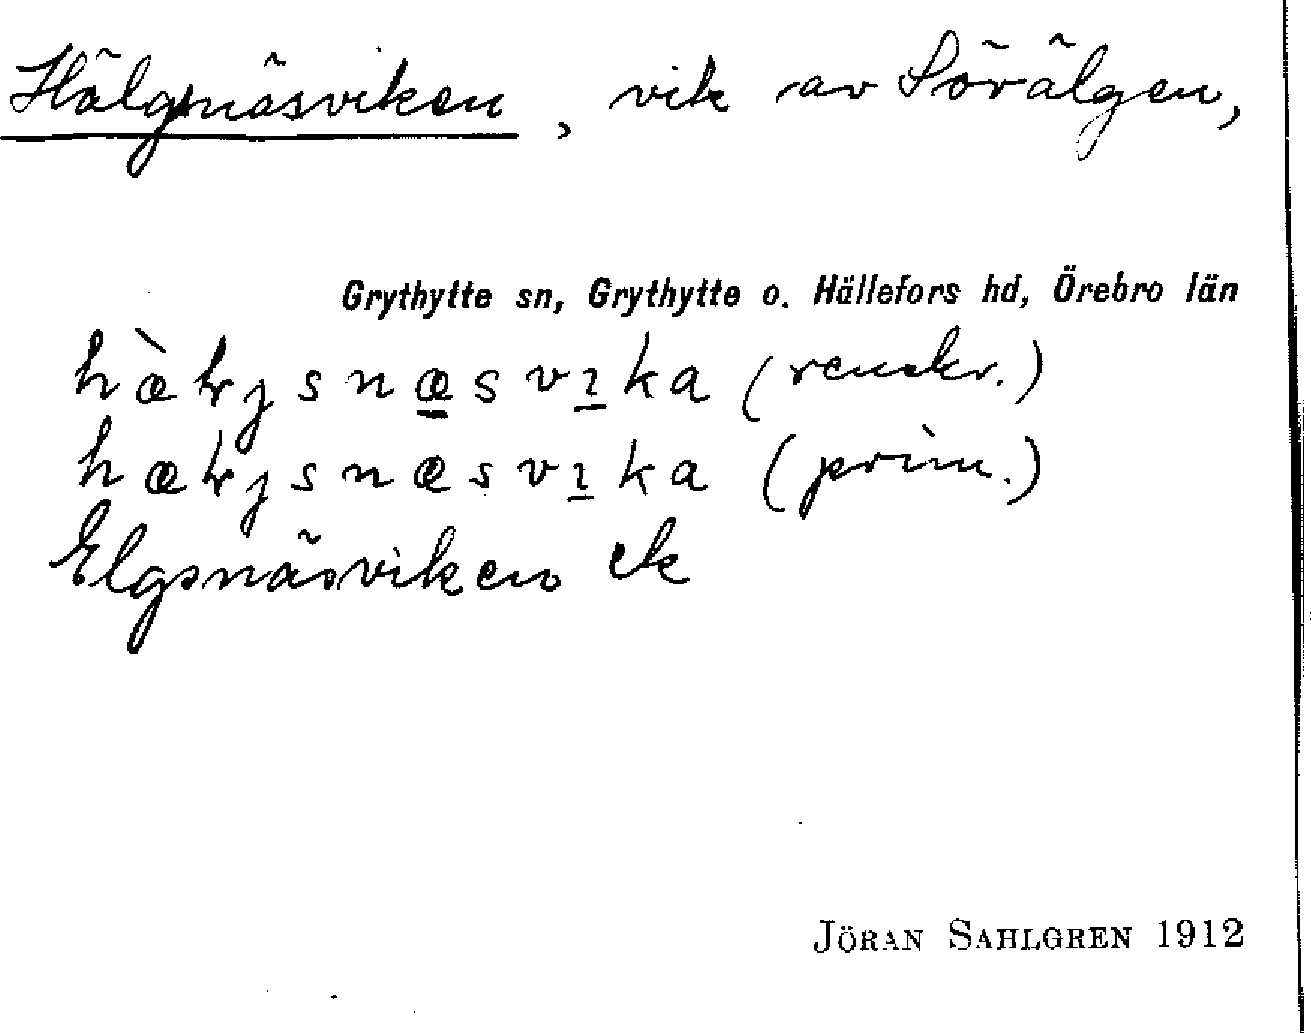 Hälgnäsviken, vik av Sörälgen,
Grythytte sn, Grythytte o. Hällefors hd, Örebro län
(renskr.)
(prim.)
Elgsnäsviken ek
JÖRAN SAHLGREN 1912